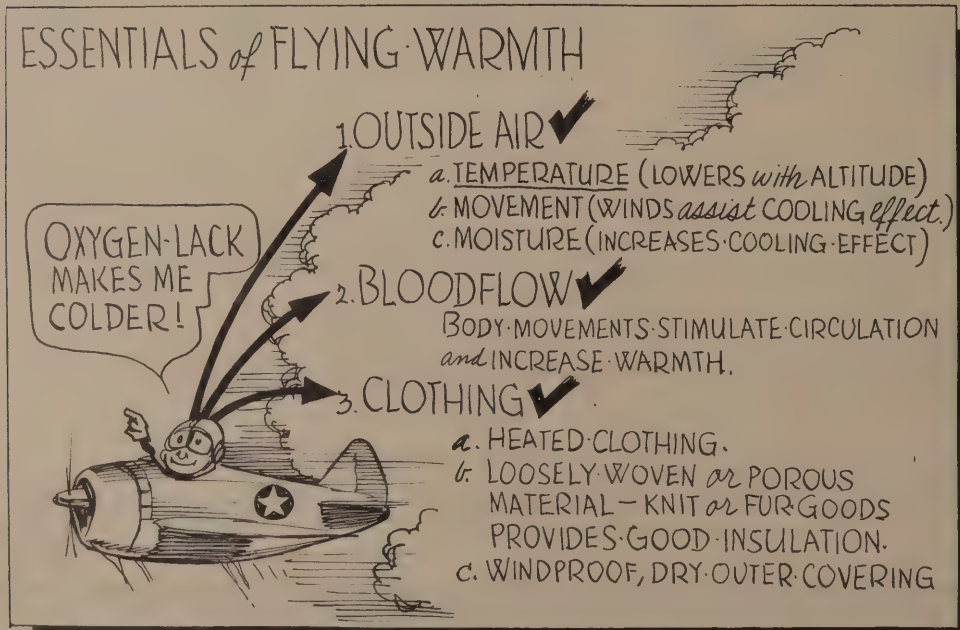 ESSENTIALS of FLYING·WARMTH
1. OUTSIDE AIR
a. TEMPERATURE (LOWERS with ALTITUDE)
b. MOVEMENT (WINDS assist COOLING effect.)
c. MOISTURE (INCREASES·COOLING·EFFECT)
OXYGEN·LACK
MAKES ME
COLDER!
2. BLOODFLOW
BODY·MOVEMENTS·STIMULATE·CIRCULATION
and INCREASE·WARMTH.
3. CLOTHING
a. HEATED·CLOTHING.
b. LOOSELY·WOVEN or POROUS
MATERIAL — KNIT or FUR·GOODS
PROVIDES·GOOD·INSULATION.
c. WINDPROOF, DRY·OUTER·COVERING